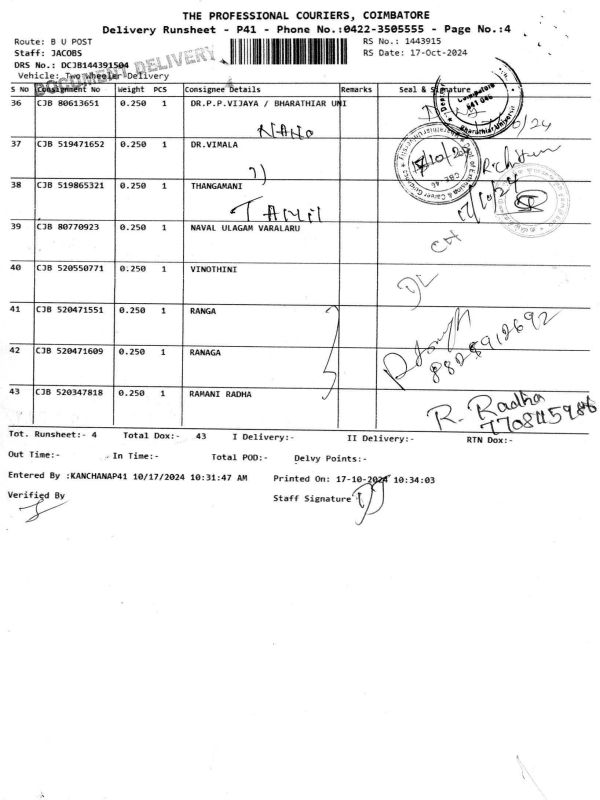 THE PROFESSIONAL COURIERS, COIMBATORE
Delivery Runsheet - P41 - Phone No.:0422-3505555 - Page No.:4
Route: B U POST RS No.: 1443915
Staff: JACOBS RS Date: 17-Oct-2024
DRS No.: DCJB144391504
DOCUMENT DELIVERY
Vehicle: Two Wheeler Delivery
S NO Consignment No Weight PCS Consignee Details Remarks Seal & Signature
36 CJB 80613651 0.250 1 DR.P.P.VIJAYA / BHARATHIAR UNI
NANO
37 CJB 519471652 0.250 1 DR.VIMALA
17/10/24
38 CJB 519865321 0.250 1 THANGAMANI
TAMIL
17/10/24
39 CJB 80770923 0.250 1 NAVAL ULAGAM VARALARU
40 CJB 520550771 0.250 1 VINOTHINI
41 CJB 520471551 0.250 1 RANGA
42 CJB 520471609 0.250 1 RANAGA
8825912692
43 CJB 520347818 0.250 1 RAMANI RADHA
R. Radha
7708115986
Tot. Runsheet:- 4 Total Dox:- 43 I Delivery:- II Delivery:- RTN Dox:-
Out Time:- In Time:- Total POD:- Delvy Points:-
Entered By :KANCHANAP41 10/17/2024 10:31:47 AM Printed On: 17-10-2024 10:34:03
Verified By Staff Signature